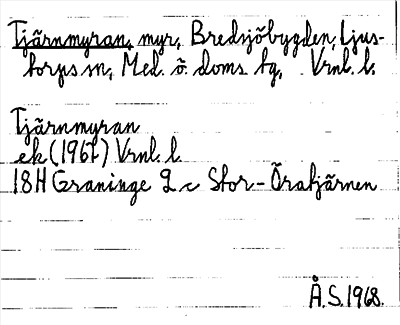 Tjärnmyran, myr, Bredsjöbygden, Ljus-
torps sn, Med. ö. doms. tg, Vrnl. l.
Tjärnmyran
ek (1967) Vrnl. l.
18H Graninge 9 c Stor-Öratjärnen
Å.S. 1968.